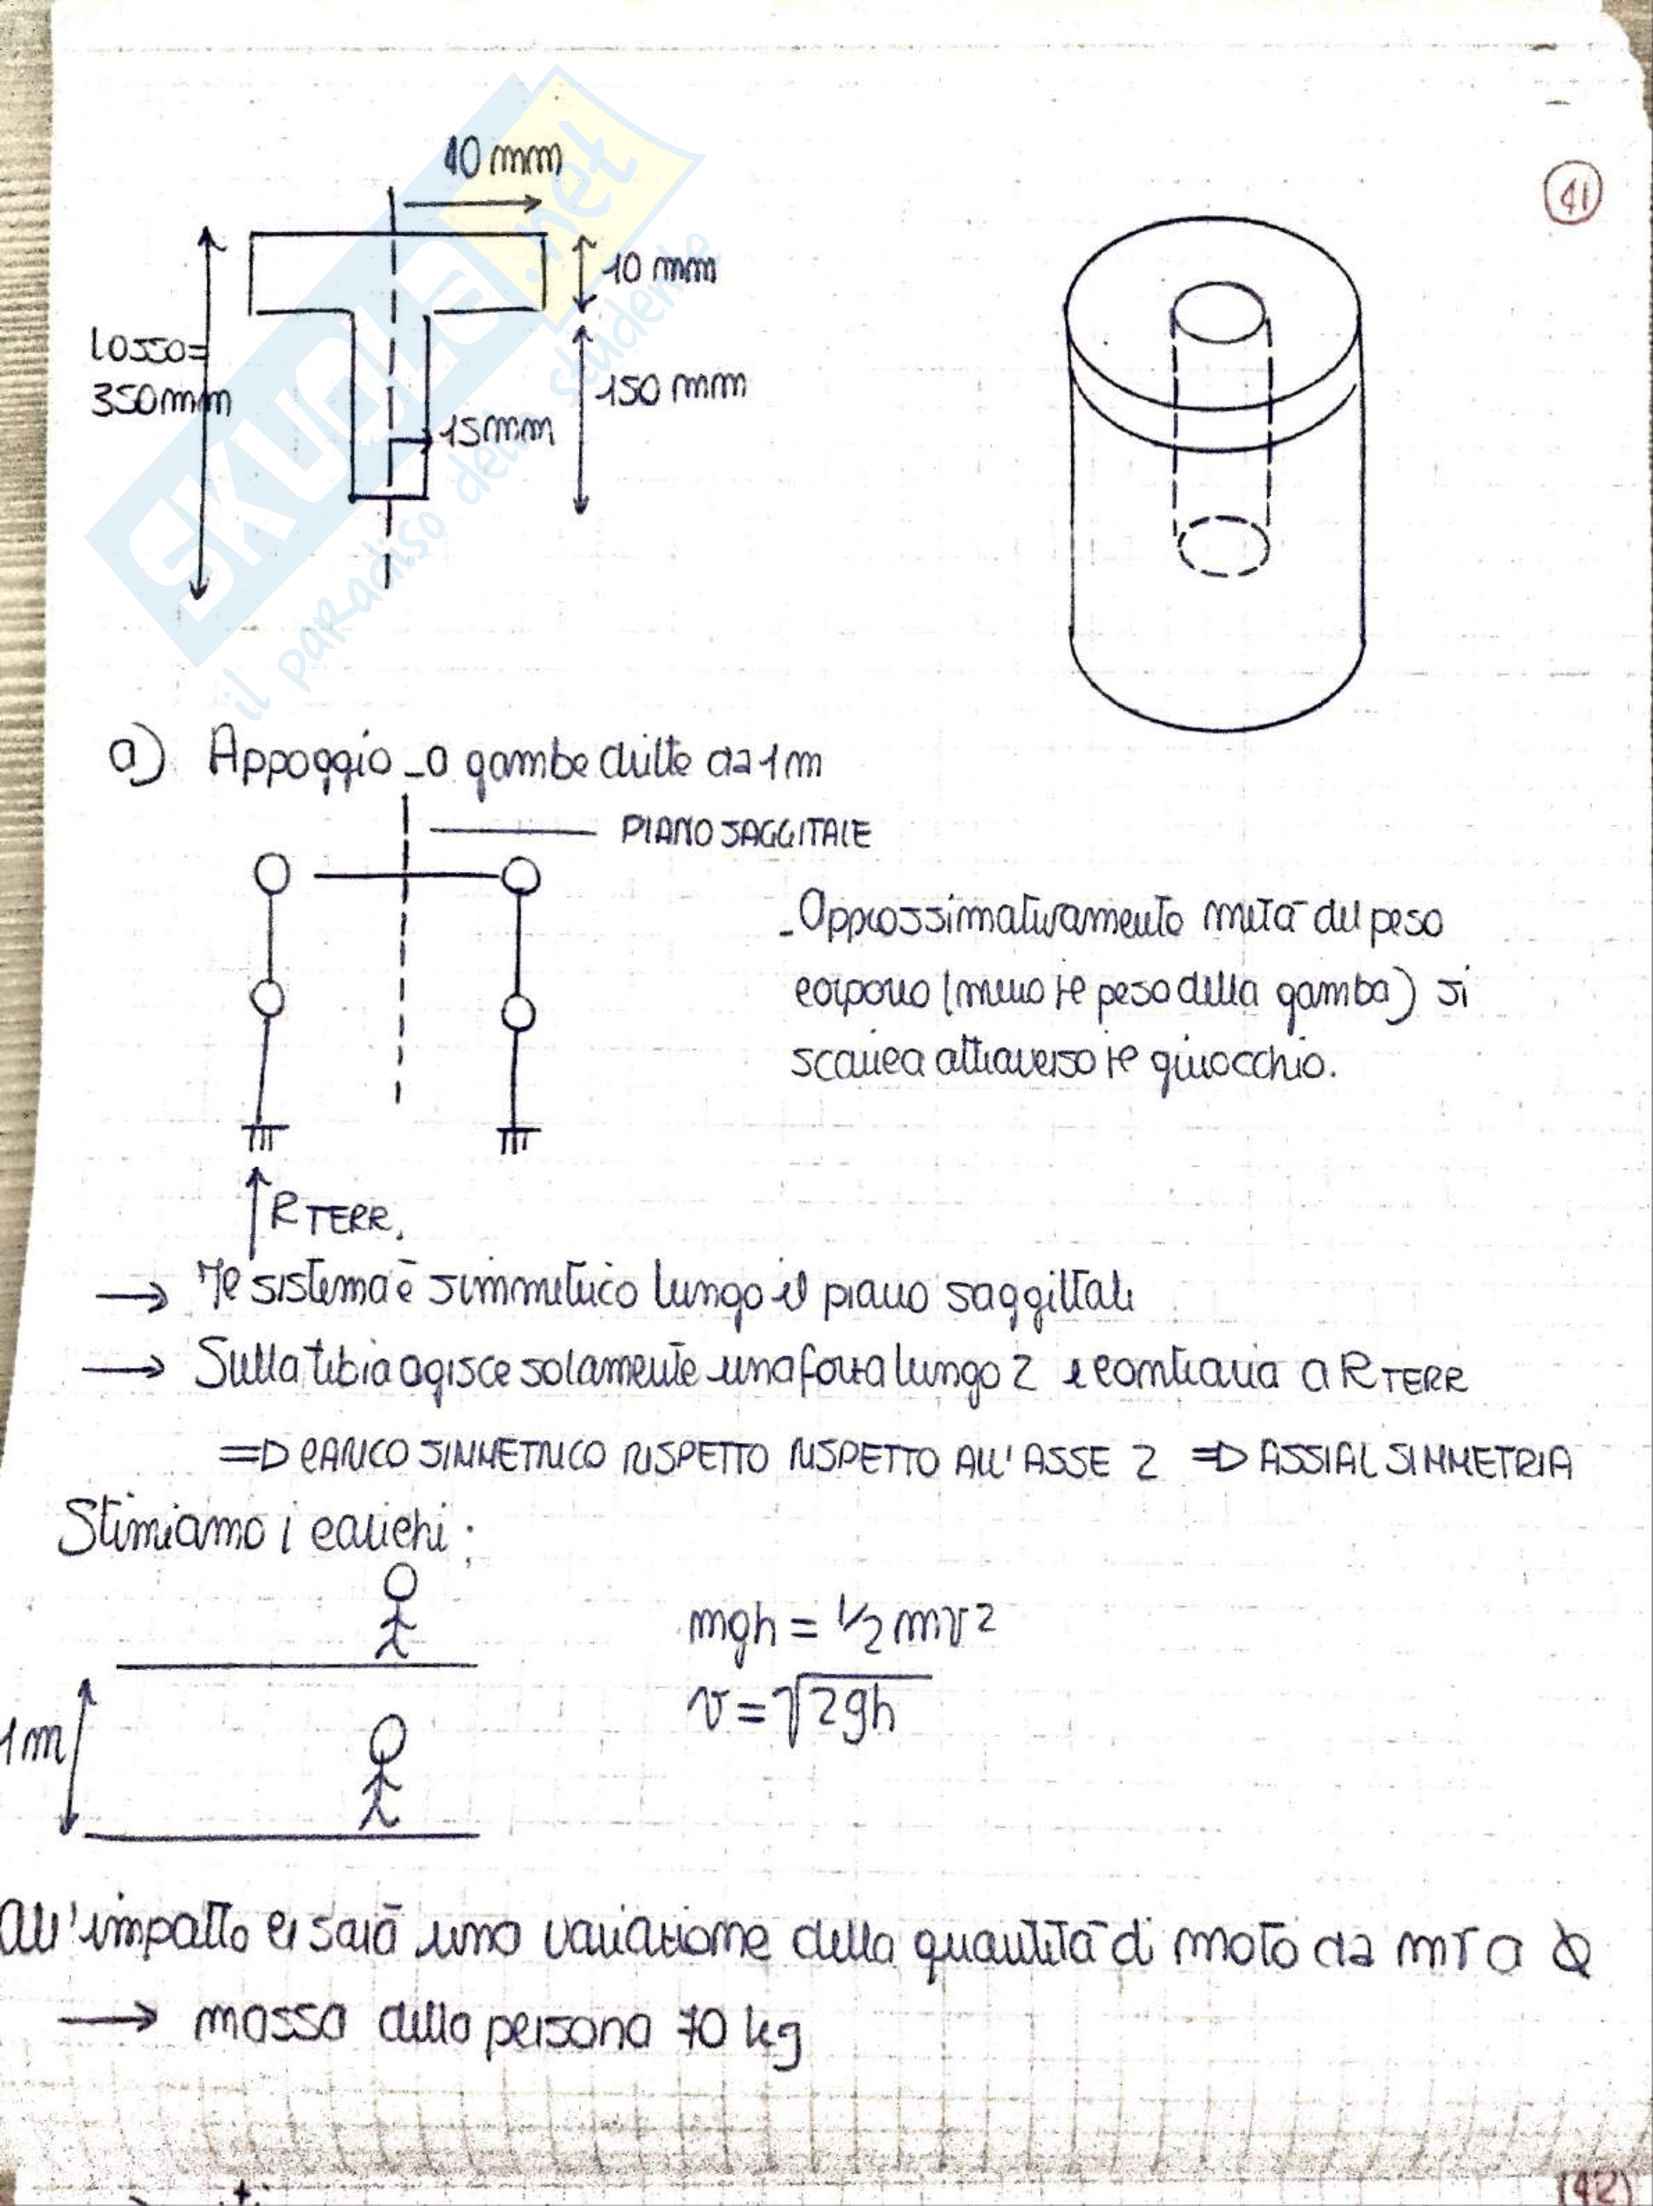 41
40 mm
10 mm
Losso=
350mm
150 mm
15mm
SKUOLA.net
il paradiso dello studente
a) Appoggio a gambe dritte da 1 m
PIANO SAGGITALE
Approssimativamente metà del peso
corporeo (meno il peso della gamba) si
scarica attraverso il ginocchio.
R TERR.
→ Il sistema è simmetrico lungo il piano saggittale
→ Sulla tibia agisce solamente una forza lungo z e contraria a R TERR
=D CARICO SIMMETRICO RISPETTO RISPETTO ALL'ASSE Z =D ASSIALSIMMETRIA
Stimiamo i carichi:
mgh = 1/2 mv2
v = √2gh
1m
All'impatto ci sarà una variazione della quantità di moto da mv a 0
→ massa della persona 70 kg
(42)